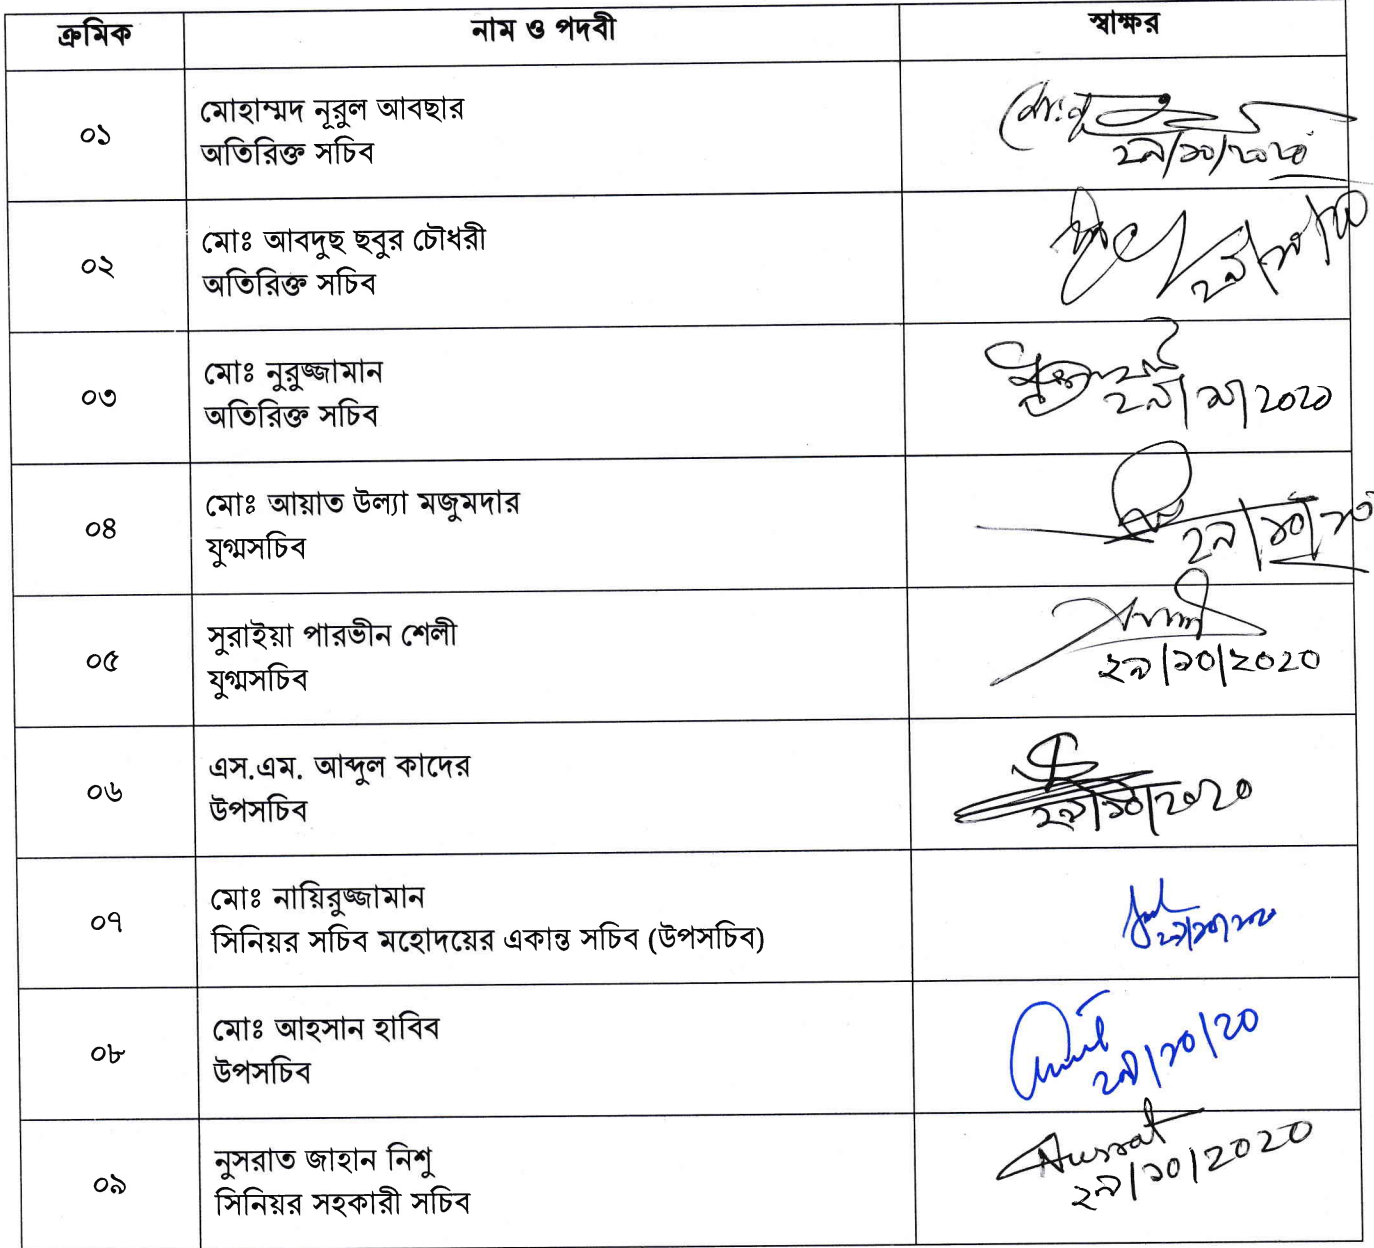 ক্রমিক নাম ও পদবী স্বাক্ষর
০১
মোহাম্মদ নূরুল আবছার
অতিরিক্ত সচিব
২৯/১০/২০২০
০২
মোঃ আবদুছ ছবুর চৌধরী
অতিরিক্ত সচিব
০৩
মোঃ নুরুজ্জামান
অতিরিক্ত সচিব
০৪
মোঃ আয়াত উল্যা মজুমদার
যুগ্মসচিব
২৯/১০/২০
০৫
সুরাইয়া পারভীন শেলী
যুগ্মসচিব
২৯/১০/২০২০
০৬
এস.এম. আব্দুল কাদের
উপসচিব
২৯/১০/২০২০
০৭
মোঃ নায়িরুজ্জামান
সিনিয়র সচিব মহোদয়ের একান্ত সচিব (উপসচিব)
০৮
মোঃ আহসান হাবিব
উপসচিব
২৯/১০/২০
০৯
নুসরাত জাহান নিশু
সিনিয়র সহকারী সচিব
Nusrat
২৯/১০/২০২০